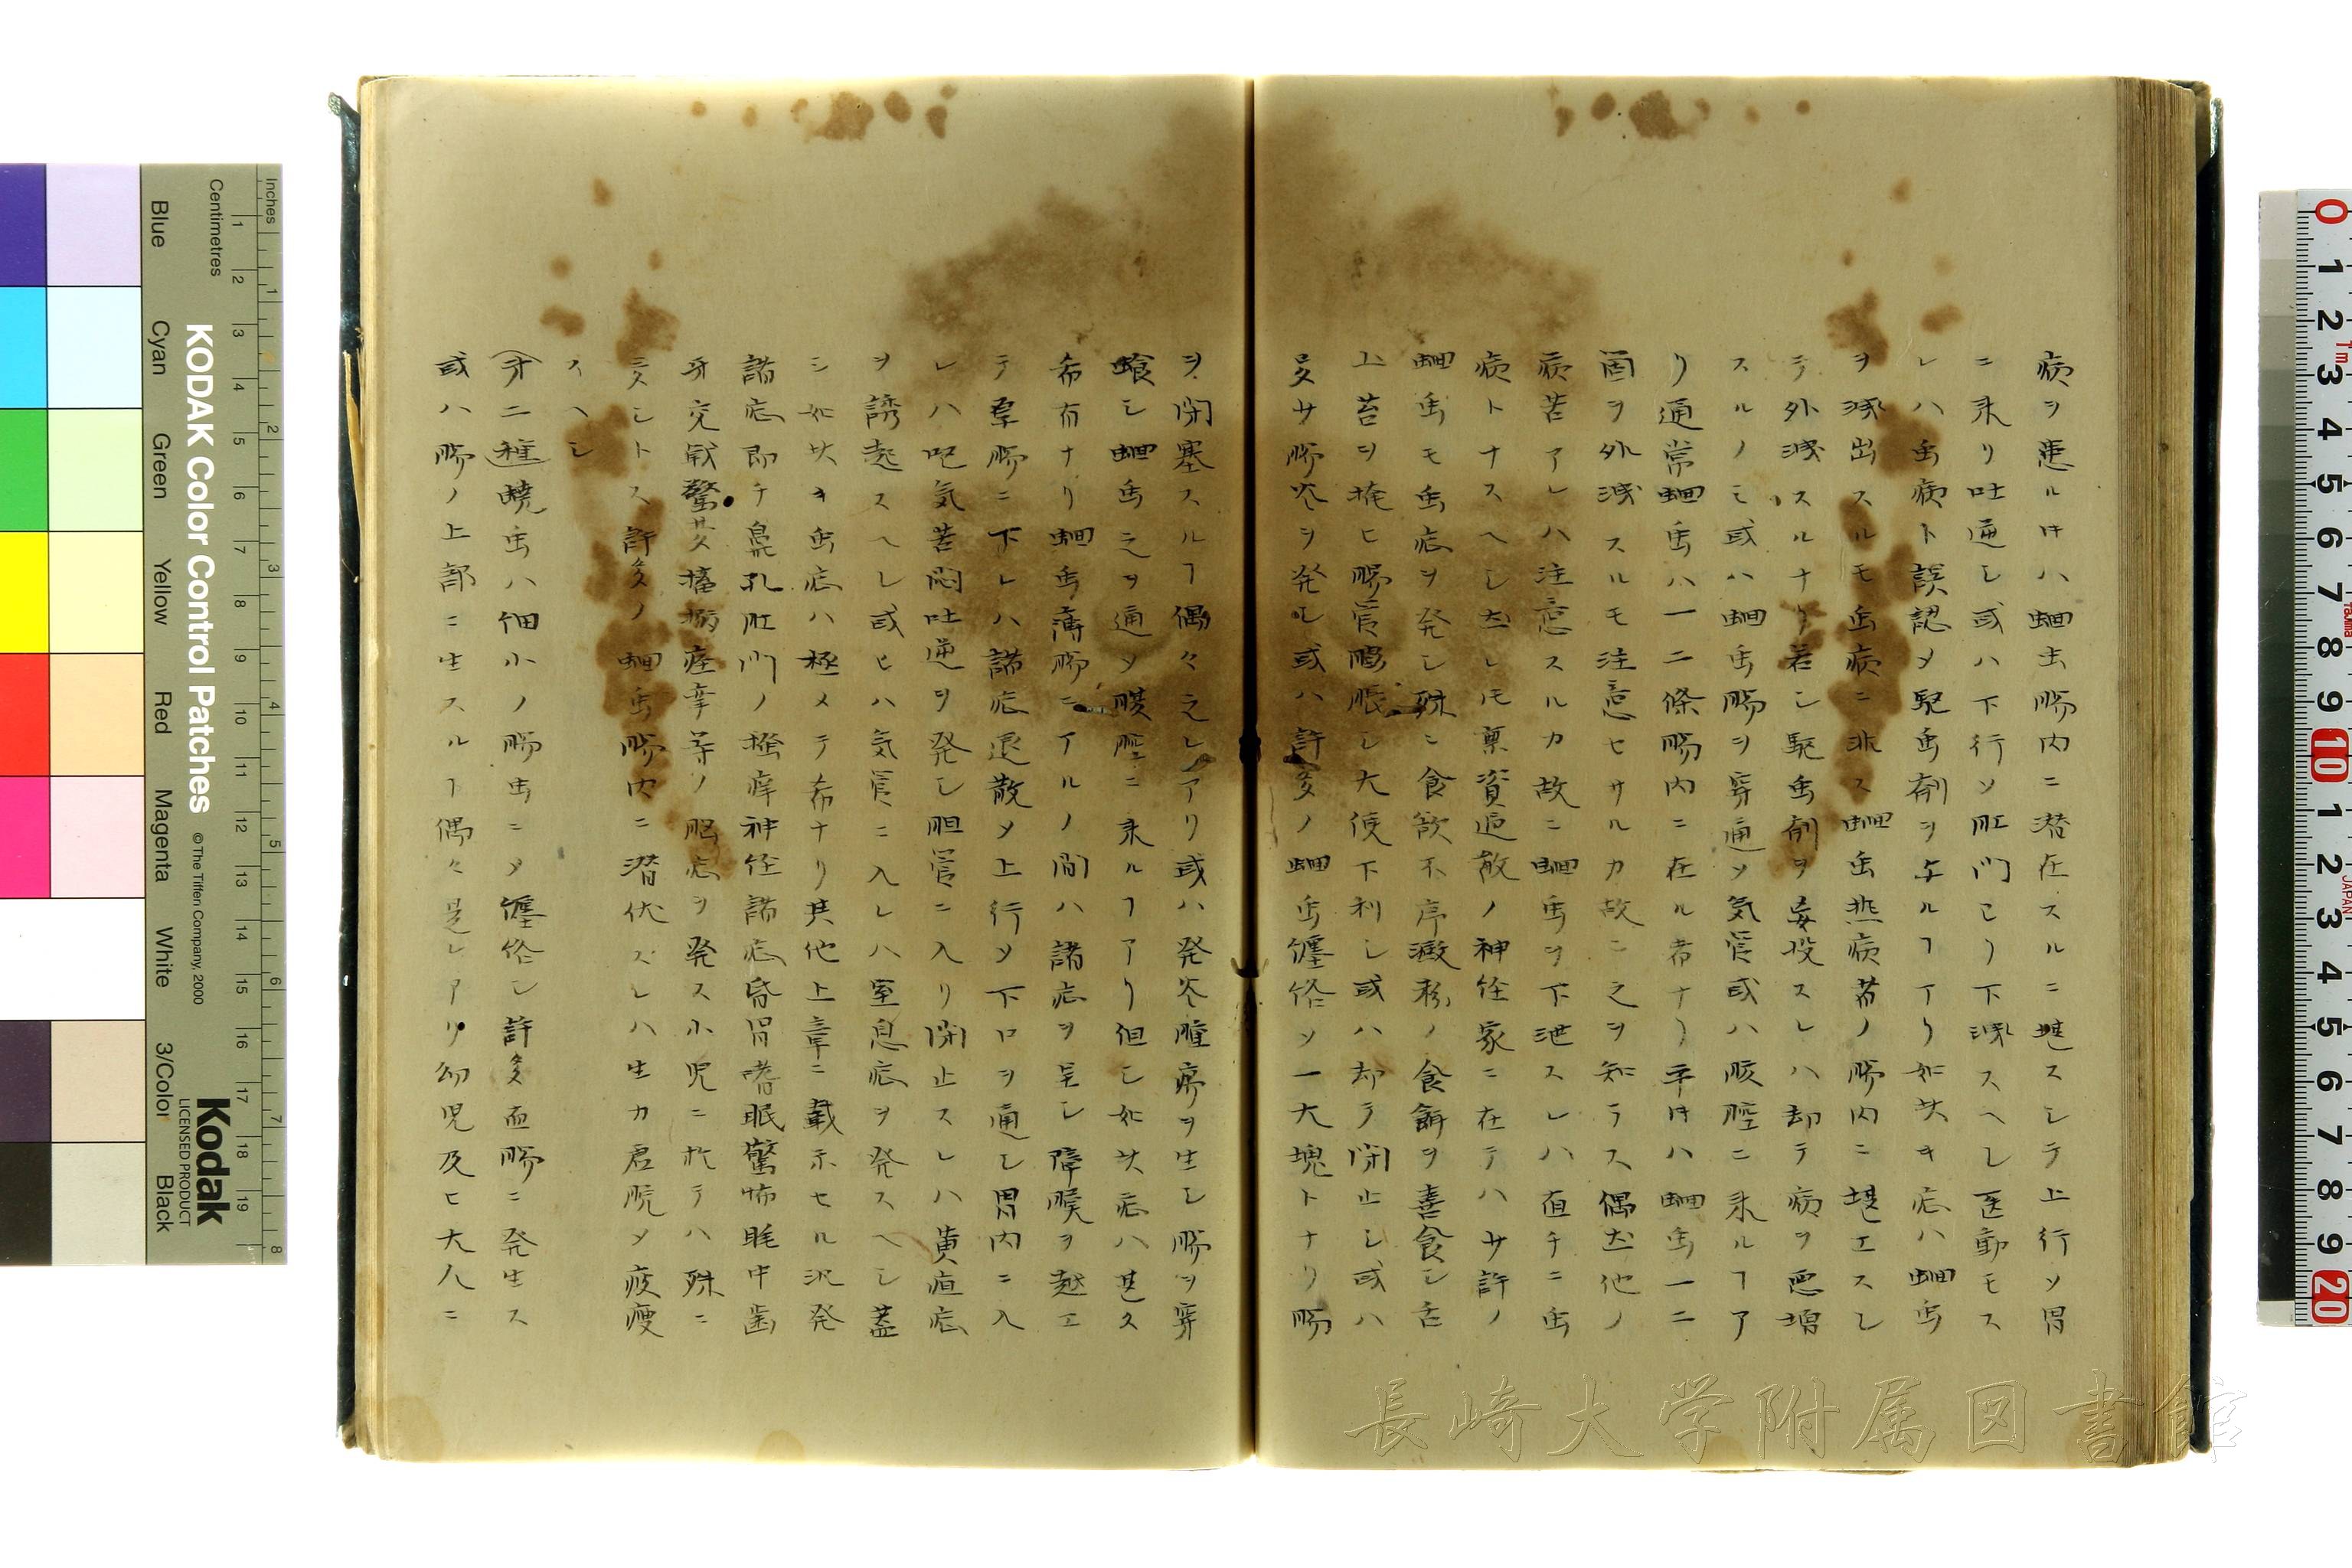 病ヲ患ル𪜈ハ蛔虫腸内ニ潜在スルニ堪スシテ上行ソ胃
ニ来リ吐逆シ或ハ下行ソ肛門ヨリ下泄スヘシ医動モス
レハ虫病ト誤認メ駆虫剤ヲ与ルヿアリ如此キ症ハ蛔虫
ヲ泄出スルモ虫病ニ非ス蛔虫熱病者ノ腸内ニ堪エスシ
テ外泄スルナリ若シ駆虫剤ヲ妄投スレハ却テ病ヲ悪増
スルノミ或ハ蛔虫腸ヲ穿通ソ気管或ハ腹腔ニ来ルヿア
リ通常蛔虫ハ一二條腸内ニ在ル者ナリ平時ハ蛔虫一二
箇ヲ外泄スルモ注意セサルカ故ニ之ヲ知ラス偶然他ノ
病苦アレハ注意スルカ故ニ蛔虫ヲ下泄スレハ直チニ虫
病トナスヘシ然レ𪜈稟資過敏ノ神経家ニ在テハ少許ノ
蛔虫モ虫症ヲ発シ殊ニ食欲不序澱粉ノ食餌ヲ喜食シ舌
上苔ヲ掩ヒ腸管膨脹シ大便下利シ或ハ却テ閉止シ或ハ
多少腸炎ヲ発シ或ハ許多ノ蛔虫纏絡ソ一大塊トナリ腸
ヲ閉塞スルヿ偶々之レアリ或ハ発炎腫瘍ヲ生シ腸ヲ穿
喰シ蛔虫之ヲ通メ腹腔ニ来ルヿアリ但シ如此症ハ甚タ
希有ナリ蛔虫薄腸ニアルノ間ハ諸症ヲ呈シ障膜ヲ越エ
テ厚腸ニ下レハ諸症退散メ上行メ下口ヲ通シ胃内ニ入
レハ呃気苦悶吐逆ヲ発シ胆管ニ入リ閉止スレハ黄疸症
ヲ誘起スヘシ或ヒハ気管ニ入レハ窒息症ヲ発スヘシ蓋
シ如此キ虫症ハ極メテ希ナリ其他上章ニ載示セル汎発
諸症即チ鼻孔肛門ノ掻痒神経諸症昏冒嗜眠驚怖眠中歯
牙交戦驚其多搐搦痙挛等ノ脳症ヲ発ス小児ニ於テハ殊ニ
多シトス許多ノ蛔虫腸内ニ潜伏スレハ生力虚脱メ疲痩
スヘシ
(第二種)蟯虫ハ細小ノ腸虫ニメ纏絡シ許多直腸ニ発生ス
或ハ腸ノ上部ニ生スルヿ偶々是レアリ幼児及ヒ大人ニ
KODAK Color Control Patches
© The Tiffen Company, 2000
Kodak
LICENSED PRODUCT
Blue Cyan Green Yellow Red Magenta White 3/Color Black
Centimetres
Inches
長崎大学附属図書館